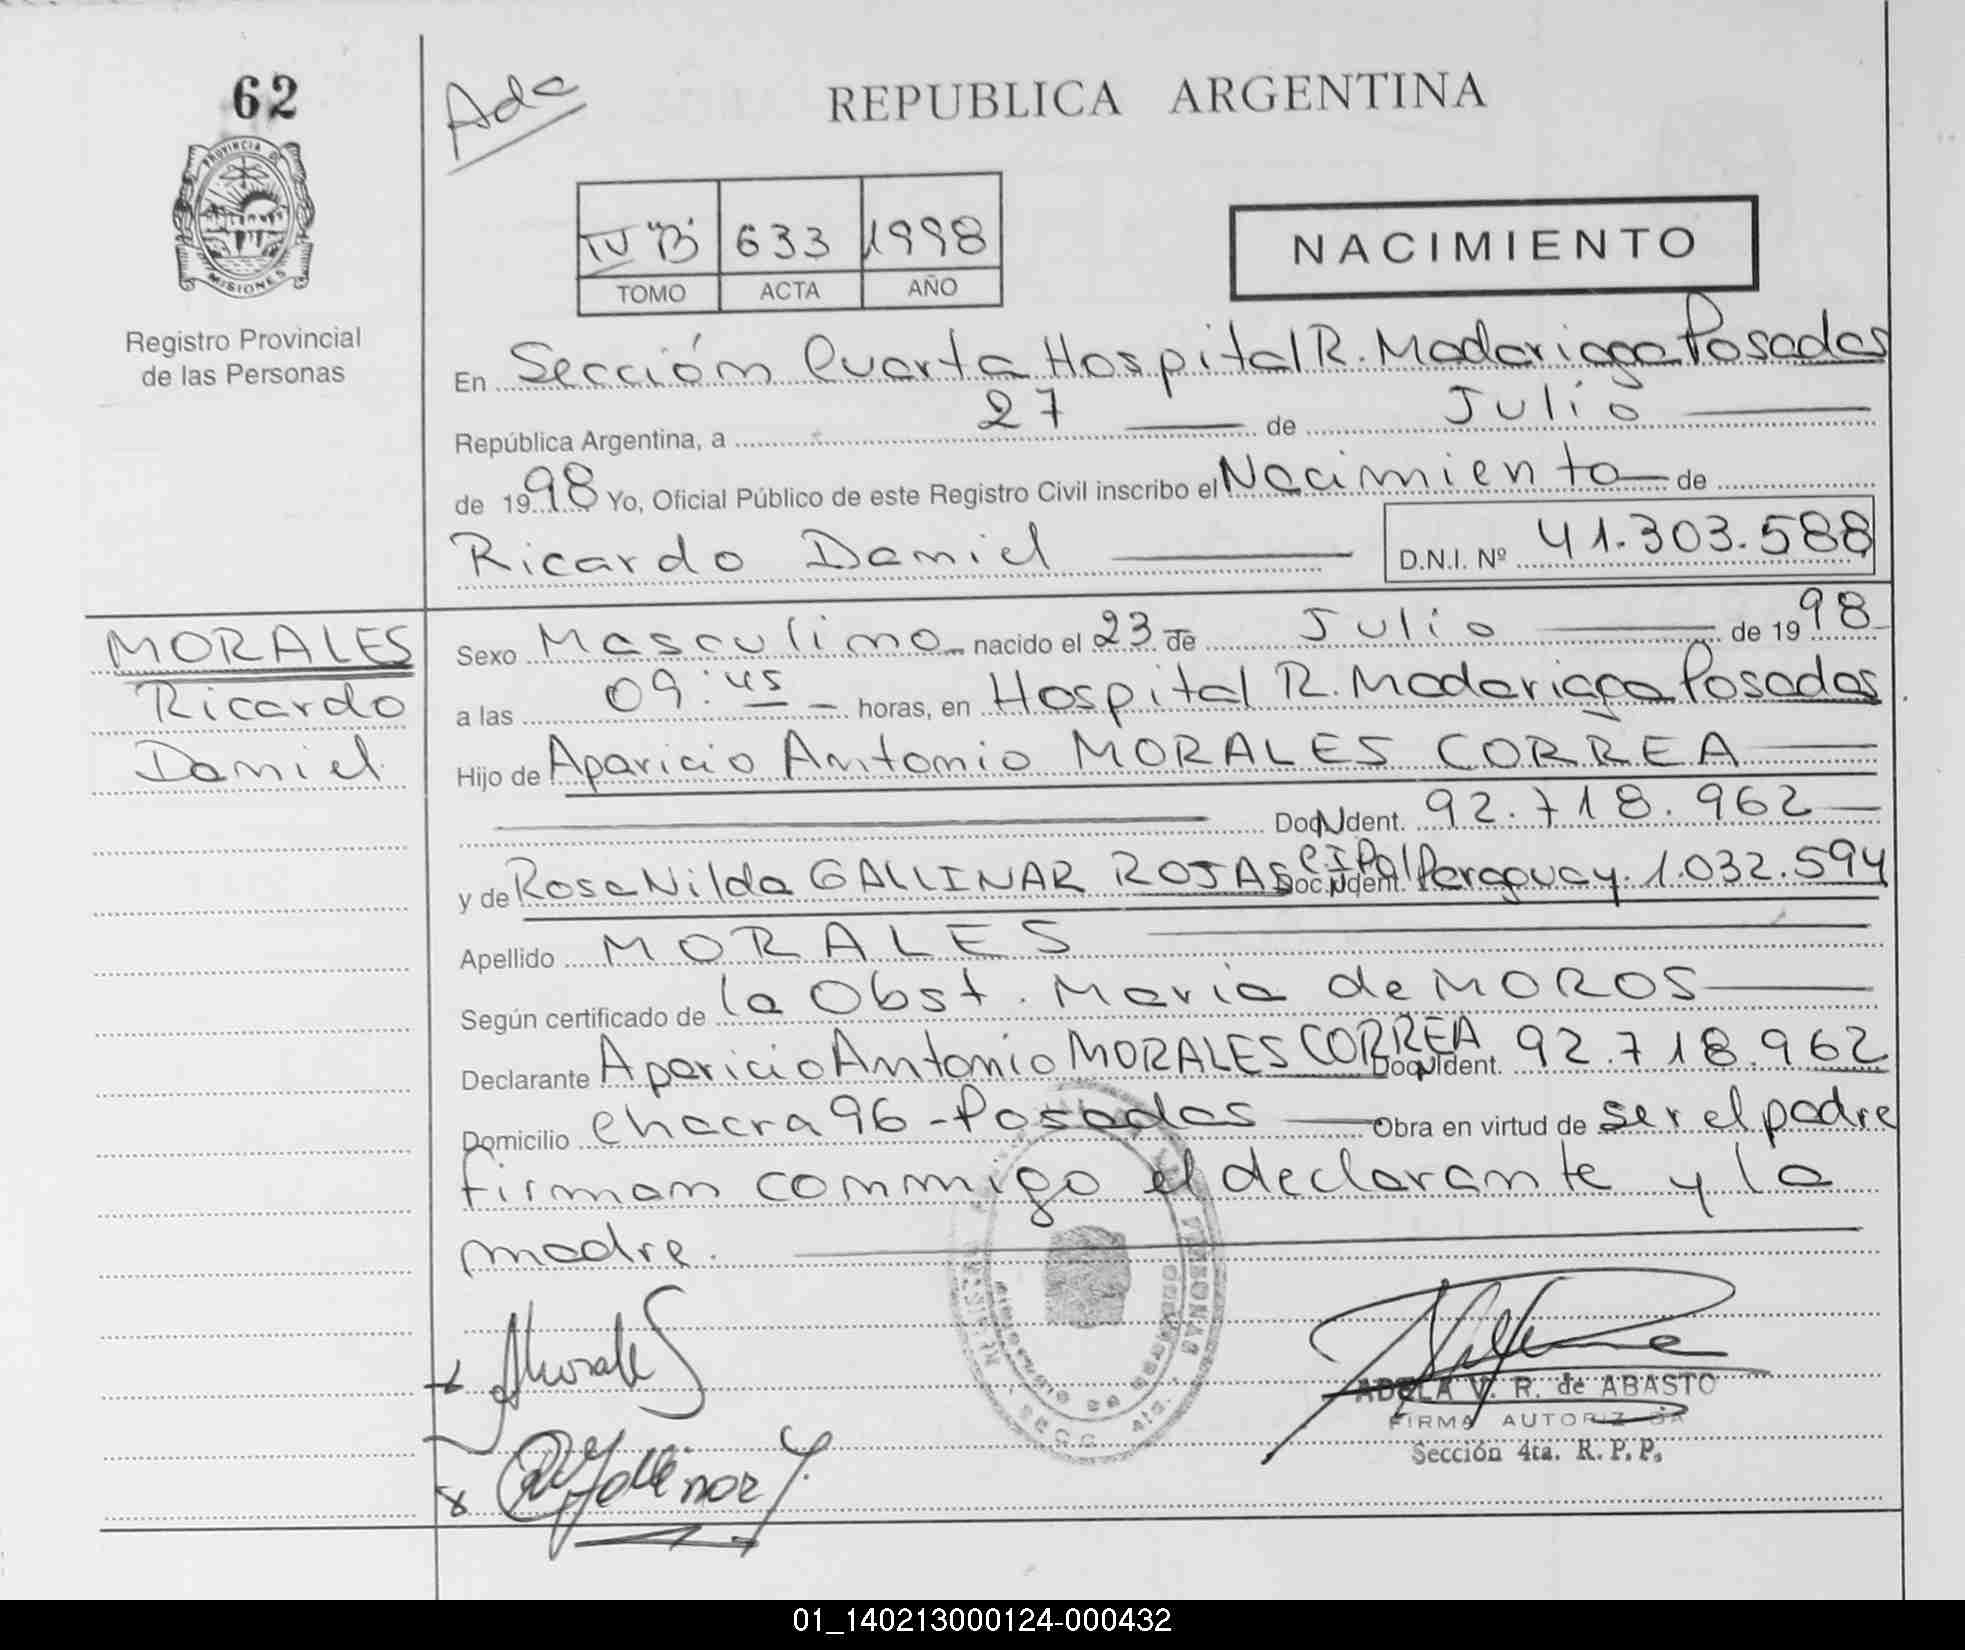 62
Ada
REPUBLICA ARGENTINA
PROVINCIA DE MISIONES
IV "B" 633 1998
TOMO ACTA AÑO
NACIMIENTO
Registro Provincial
de las Personas
En Sección Cuarta Hospital R. Madariaga Posadas
República Argentina, a 27 de Julio
de 1998 Yo, Oficial Público de este Registro Civil inscribo el Nacimiento de
Ricardo Daniel D.N.I. Nº 41.303.588
MORALES
Ricardo
Daniel
Sexo Masculino nacido el 23 de Julio de 1998
a las 09:45 horas, en Hospital R. Madariaga Posadas
Hijo de Aparicio Antonio MORALES CORREA
Doc. Ident. 92.718.962
y de Rosa Nilda GALLINAR ROJAS Doc. Ident. CIPol Paraguay 1.032.594
Apellido MORALES
Según certificado de la Obst. Maria de MOROS
Declarante Aparicio Antonio MORALES CORREA Doc. Ident. 92.718.962
Domicilio Chacra 96 - Posadas Obra en virtud de ser el padre
firman conmigo el declarante y la
madre.
AMorales
ADELA V. R. de ABASTO
FIRMA AUTORIZADA
Sección 4ta. R. P. P.
01_140213000124-000432